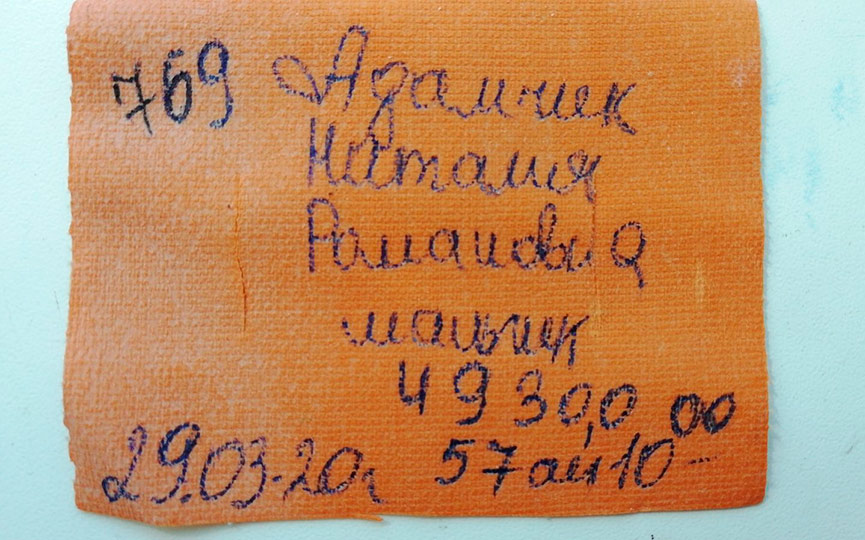 769 Адамчик
Наталия
Романовна
мальчик
4930,0
29.03.20г 57 см 10 00